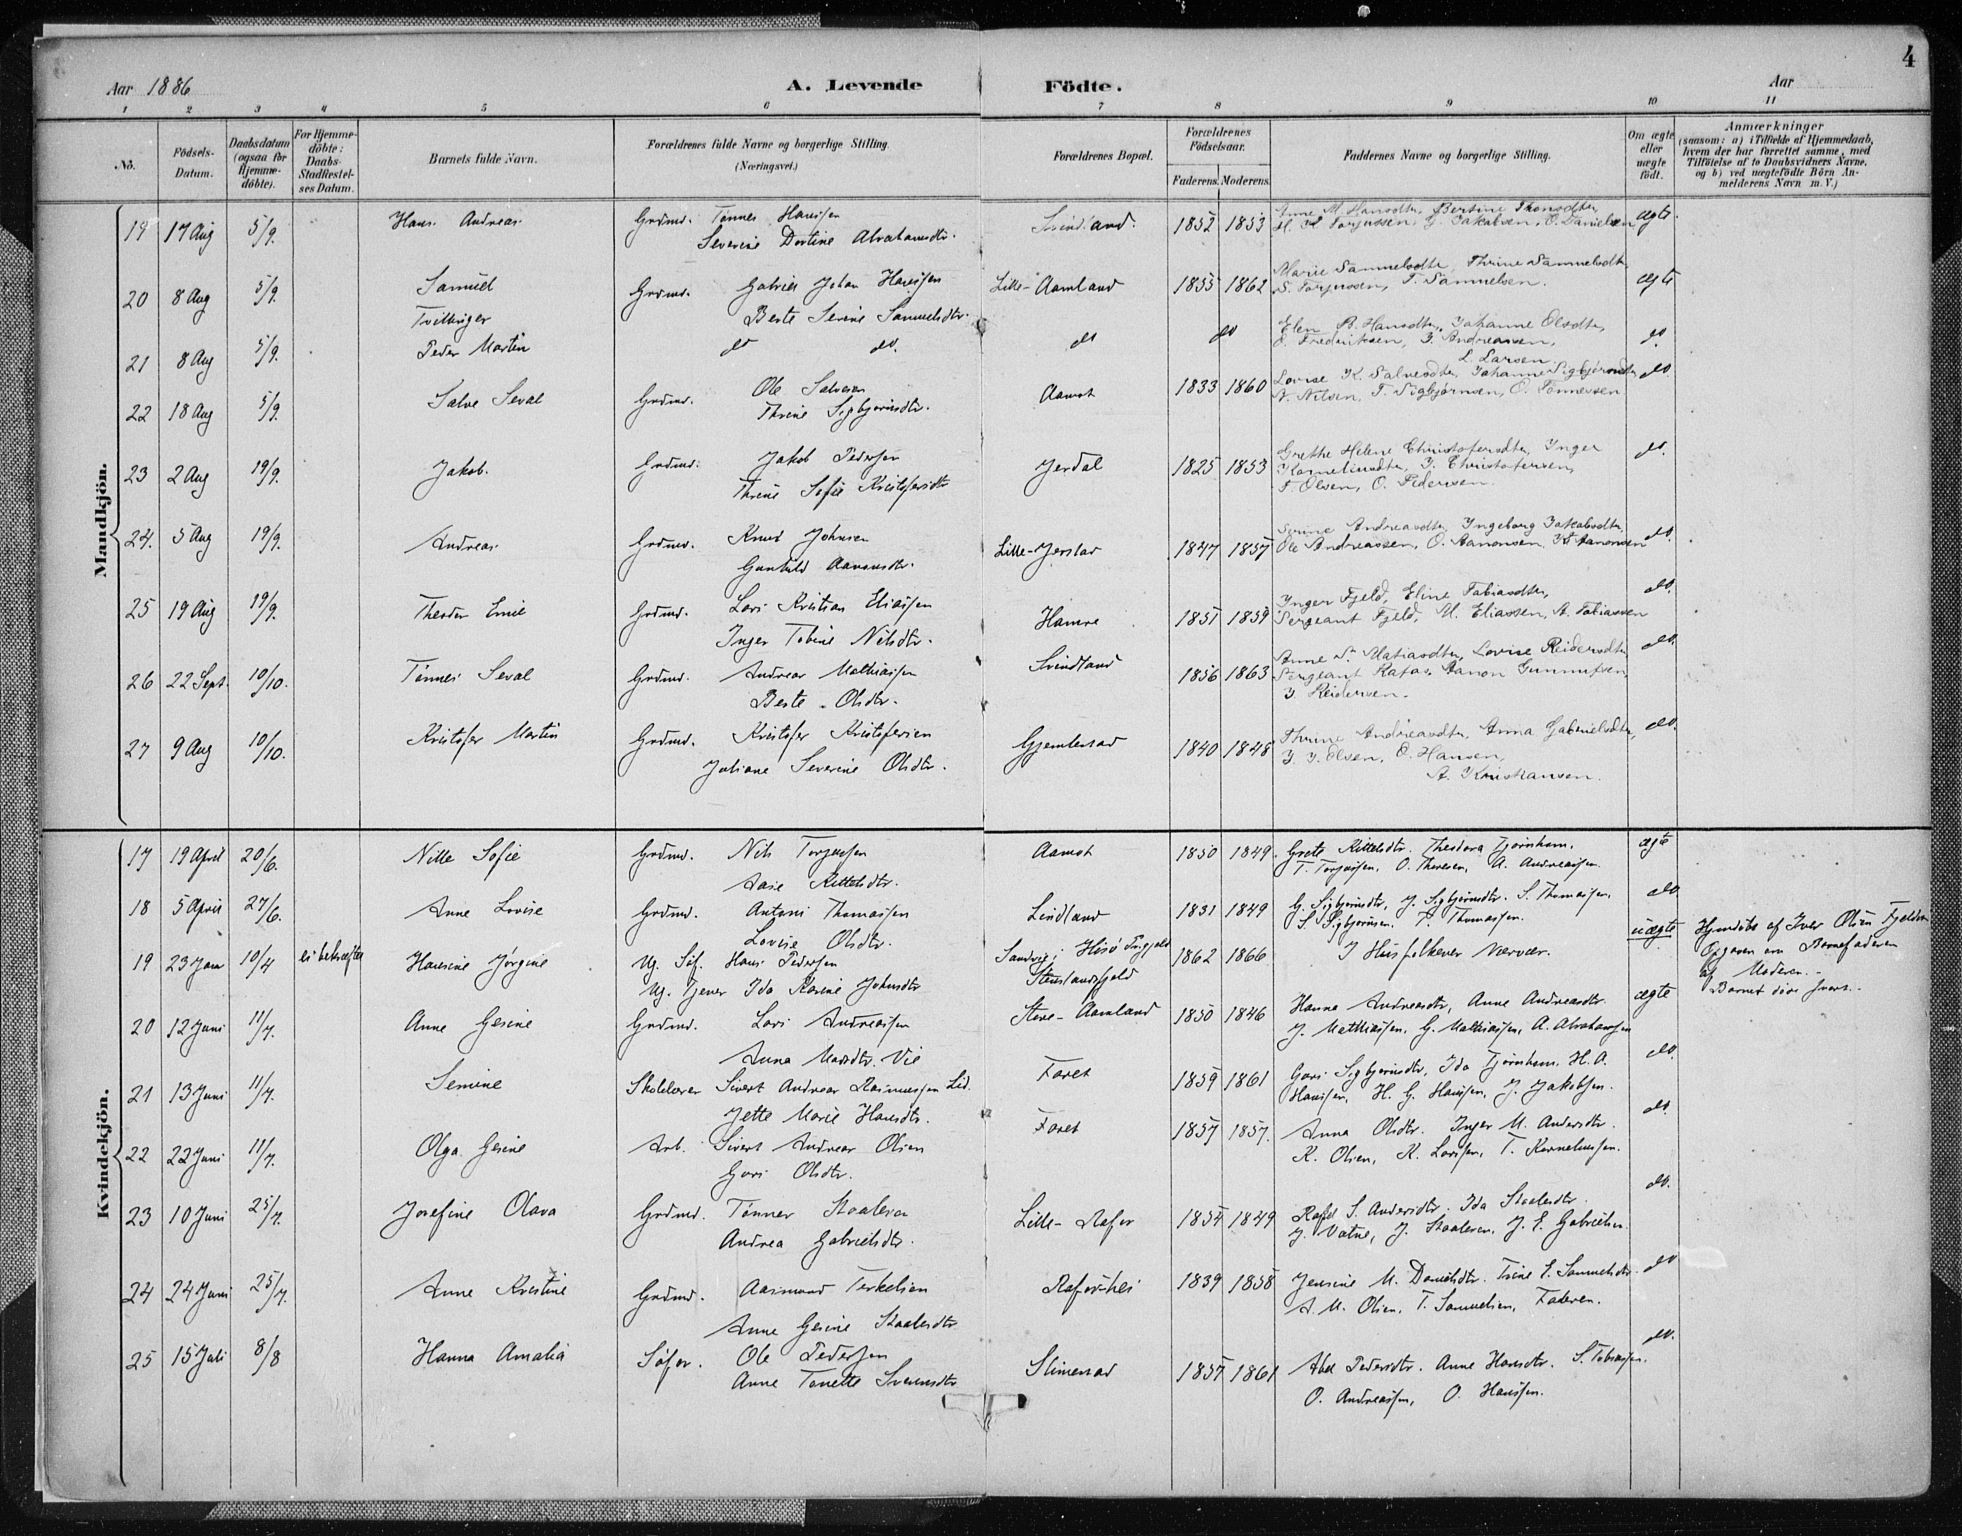 4
Aar 1886 A. Levende Födte. Aar
1 2 3 4 5 6 7 8 9 10 11
Nö. Födsels-Datum. Daabsdatum (ogsaa for Hjemme-döbte). For Hjemme-döbte: Daabs-Stadfæstel-ses Datum. Barnets fulde Navn. Forældrenes fulde Navne og borgerlige Stilling. (Næringsvei.) Forældrenes Bopæl. Forældrenes Födselsaar. Faderens. Moderens. Faddernes Navne og borgerlige Stilling. Om ægte eller uægte födt. Anmærkninger (saasom: a) i Tilfælde af Hjemmedaab, hvem der har forrettet samme, med Tilföielse af to Daabsvidners Navne, og b) ved uægtefödte Börn An-melderens Navn m. V.)
Mandkjön.
19 17 Aug 5/9. Hans Andreas Grdmd. Tønnes Hansen Svindland 1852 1853 Anne M. Hansdtr, Bertine Thorsdtr, ægte
Severine Dortine Abrahamsdtr. H. K. Torjussen, J. Jakobsen, O. Danielsen
20 8 Aug 5/9. Samuel Grdmd. Gabriel Johan Hansen Lille-Aamland 1855 1862 Marie Samuelsdtr, Thrine Samuelsdtr, ægte
Tvillinger Berte Serine Samuelsdtr. S. Torjussen, T. Samuelsen.
21 8 Aug 5/9. Peder Martin do do. do do Elen B. Hansdtr, Johanne Olsdtr, do.
E. Fredriksen, J. Andreassen,
L. Larsen.
22 18 Aug 5/9. Salve Seval Grdmd. Ole Salvesen Aamot 1833 1860 Lovise K. Salvesdtr, Johanne Sigbjørnsdtr, do.
Thrine Sigbjørnsdtr. N. Nilsen, T. Sigbjørnsen, O. Tønnessen
23 2 Aug 19/9. Jakob. Grdmd. Jakob Pedersen Jerdal 1825 1853 Grethe Helene Christofersdtr, Inger do.
Thrine Sofie Kristofersdtr Korneliusdtr, J. Christofersen,
T. Olsen, O. Pedersen.
24. 5 Aug 19/9. Andreas Grdmd. Knud Johnsen Lille-Jerstad 1847 1857 Serine Andreasdtr, Ingeborg Jakobsdtr, do.
Gunhild Aanonsdtr. Ole Andreassen, O. Aanonsen, K. Aanonsen
25 19 Aug 19/9. Theodor Emil Grdmd. Lars Kristian Eliassen Hamre 1851 1859 Inger Fjeld, Eline Tobiasdtr, do.
Inger Tobine Nilsdtr. Sergeant Fjeld, M. Eliassen, A. Tobiassen
26 22 Sept. 10/10. Tønnes Seval Grdmd. Andreas Mathiassen Svindland 1856 1863 Anne S. Matiasdtr, Lovise Reidersdtr, do.
Berte Olsdtr. Sergeant Rafos, Aanon Gunnufsen,
J. Reidersen.
27 9 Aug 10/10. Kristofer Martin Grdmd. Kristofer Kristofersen Gjemlestad 1840 1848 Thrine Andreasdtr, Anna Gabrielsdtr, do.
Juliane Severine Olsdtr. J. J. Olsen, O. Hansen,
A. Kristiansen.
Kvindekjön.
17 19 April 20/6. Nille Sofie Grdmd. Nils Torjussen Aamot 1850 1849. Grete Kittelsdtr. Theodora Tjørnhom, ægte
Aase Kittelsdtr. T. Torjussen, O. Theresen, A. Andreassen
18 5 April 27/6. Anne Lovise Grdmd. Antoni Thomassen Lindland 1831 1849 G. Sigbjørnsdtr, J. Sigbjørnsdtr. S. Thomassen, do.
Lovise Olsdtr. S. Sigbjørnsen. T. Thomassen.
19 23 Jan 10/4 ei bekræftet Hansine Jørgine Ug. Søf. Hans Pedersen Sandvig i Hisø Prgjeld 1862 1866 I Husfolkenes Nærvær. uægte Hjemdøbt af Iver Olsen Fjeldsaa
Ug. Tjener Ida Karine Johnsdtr Stenslandsfjeld Opgaven om Barnefaderen
af Moderen.
Barnet døde
20 12 Juni 11/7. Anne Gesine Grdmd. Lars Andreassen Store-Aamland 1850 1846 Hanna Andreasdtr, Anne Andreasdtr. ægte
Anna Marsdtr. Vie J. Mathiassen, G. Mathiassen, A. Abrahamsen
21 13 Juni 11/7. Semine Skolelærer Sivert Andreas Rasmussen Lid. Faret 1859 1861 Guri Sigbjørnsdtr, Ida Tjørnhom, H. A. do.
Jette Marie Hansdtr. Hansen, H. G. Hansen, J. Jakobsen.
22 22 Juni 11/7. Olga Gesine Arb. Sivert Andreas Olsen Faret 1857 1857. Anna Olsdtr. Inger M. Andersdtr. do.
Guri Olsdtr. K. Olsen, K. Larsen, T. Korneliussen.
23 10 Juni 25/7. Josefine Olava Grdmd. Tønnes Staalesen Lille-Rafos 1854 1849 Rakel S. Andersdtr. Ida Staalesdtr. do.
Andrea Gabrielsdtr. J. Vatne, J. Staalesen, J. E. Gabrielsen.
24 24 Juni 25/7. Anne Kristine Grdmd. Aasmund Terkelsen Rafoshei 1839 1858 Jensine M. Danielsdtr. Trine E. Samuelsdtr. do
Anne Gesine Staalesdtr A. M. Olsen, T. Samuelsen, Faderen.
25 15 Juli 8/8 Hanna Amalia Søfar. Ole Pedersen Stimestad 1857 1861 Abel Pedersdtr. Anne Hansdtr. S. Tobiassen. do.
Anne Tonette Svensdtr O. Andreassen, O. Hanssen.